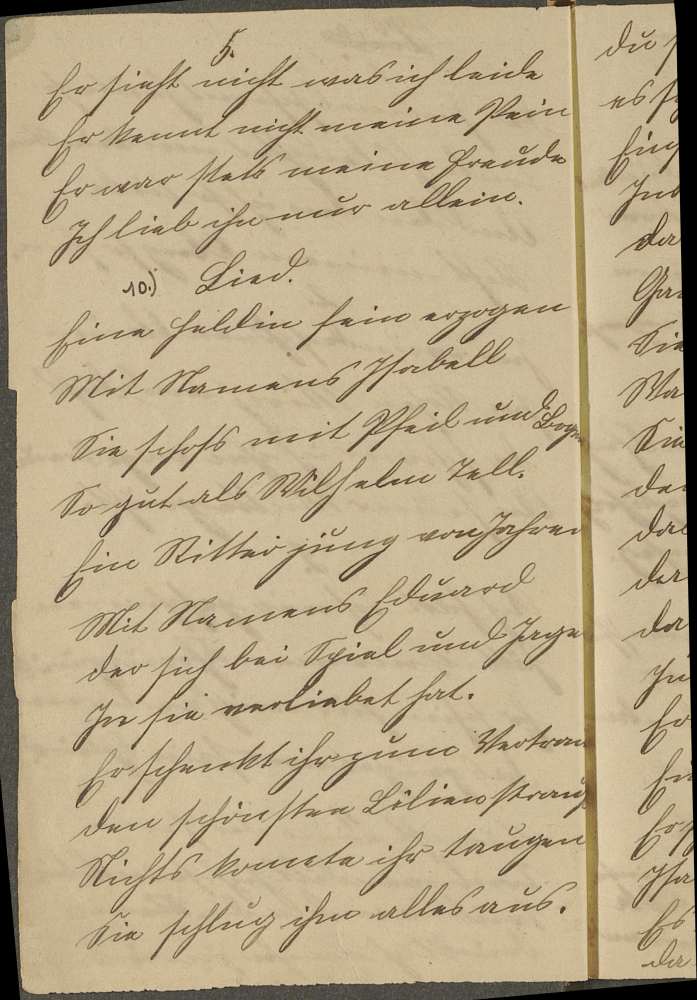 5.
Er sieht nicht was ich leide
Er kennt nicht meine Pein
Er war stets meine Freude
Ich lieb ihn nur allein.
10.) Lied.
Eine Heldin fein erzogen
Mit Namens Isabell
Sie schoss mit Pfeil und Bogen
So gut als Wilhelm Tell.
Ein Ritter jung von Jahren
Mit Namens Eduard
der sich bei Spiel und Jage
In sie verliebet hat.
Er schenkt ihr zum Vertrau
den schönsten Lilienstrauß
Nichts konnte ihr taugen
Sie schlug ihm alles aus.
du
es
Ein
Ind
da
Ga
Sie
Wa
Sie
de
das
der
da
In
Er
Ei
Er
Isa
Es
da